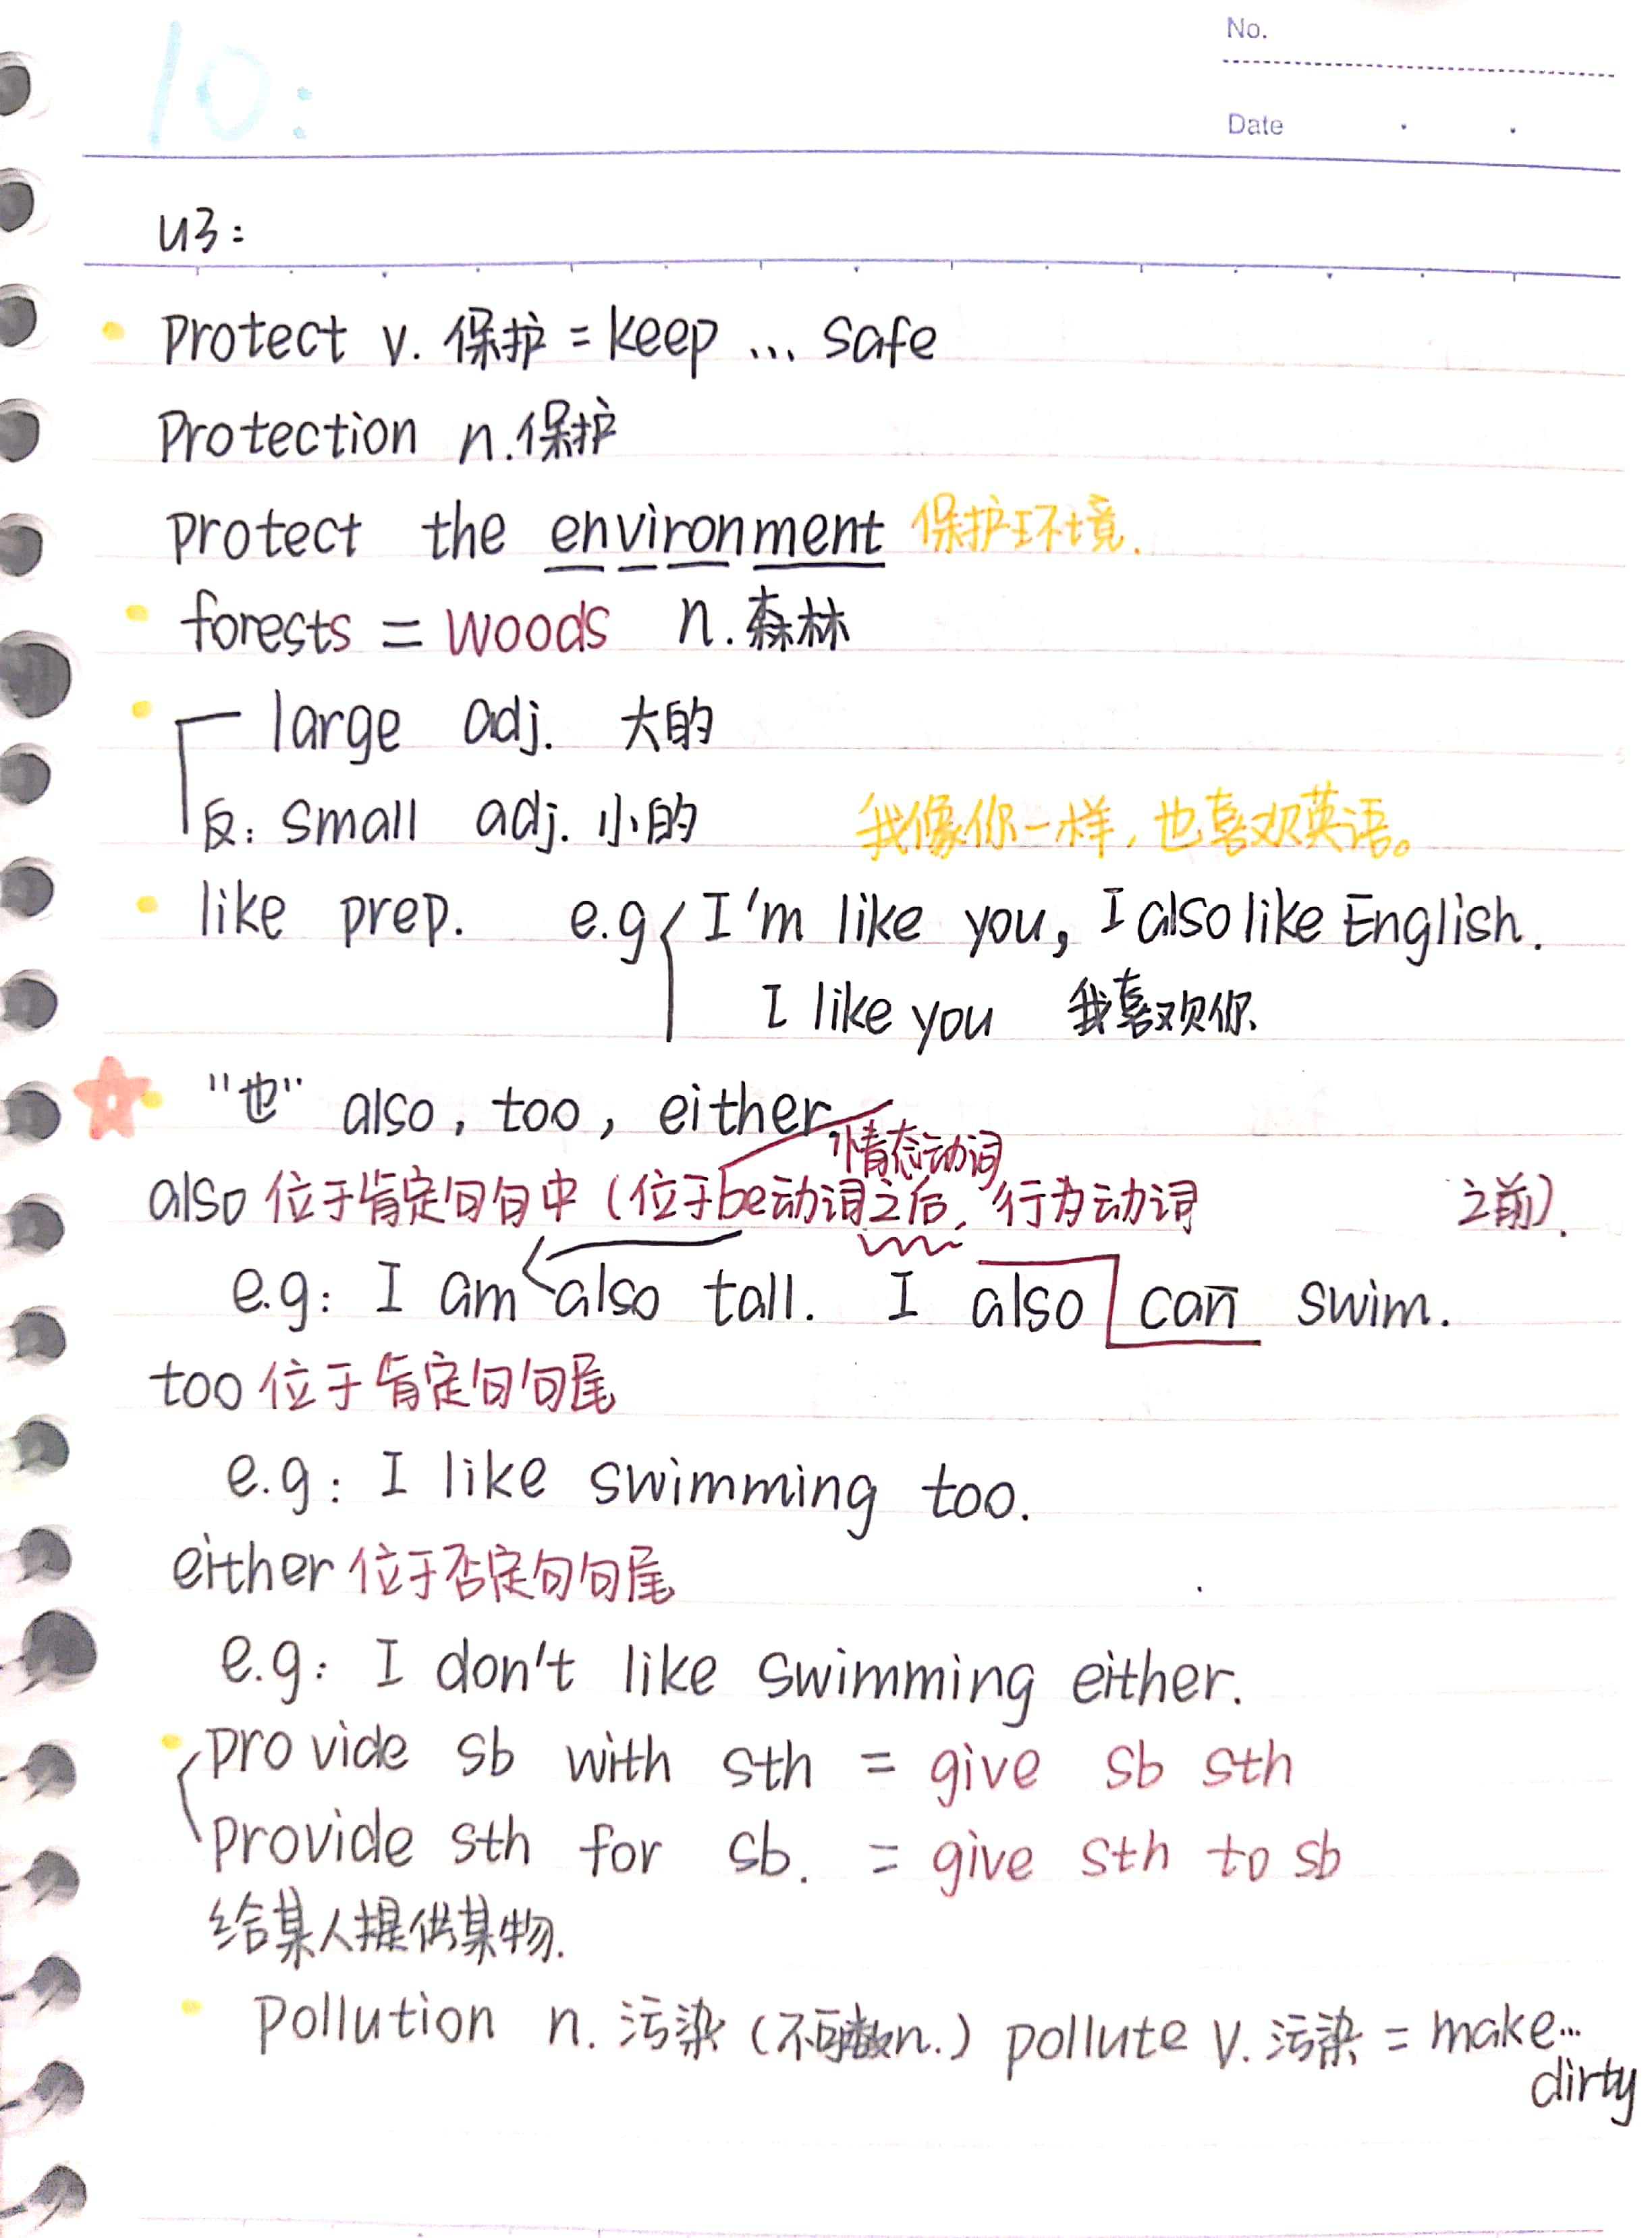 No.
10:
Date
u3:
Protect v. 保护 = keep ... safe
Protection n.保护
protect the environment 保护环境.
forests = woods n.森林
large adj. 大的
反: small adj. 小的 我像你一样,也喜欢英语。
like prep. e.g I'm like you, I also like English.
I like you 我喜欢你.
"也" also, too, either
情态动词
also 位于肯定句句中(位于be动词之后, 行为动词 之前).
e.g: I am also tall. I also can swim.
too 位于肯定句句尾
e.g: I like swimming too.
either 位于否定句句尾
e.g: I don't like swimming either.
provide sb with sth = give sb sth
provide sth for sb. = give sth to sb
给某人提供某物.
Pollution n. 污染 (不可数n.) pollute v. 污染 = make...
dirty